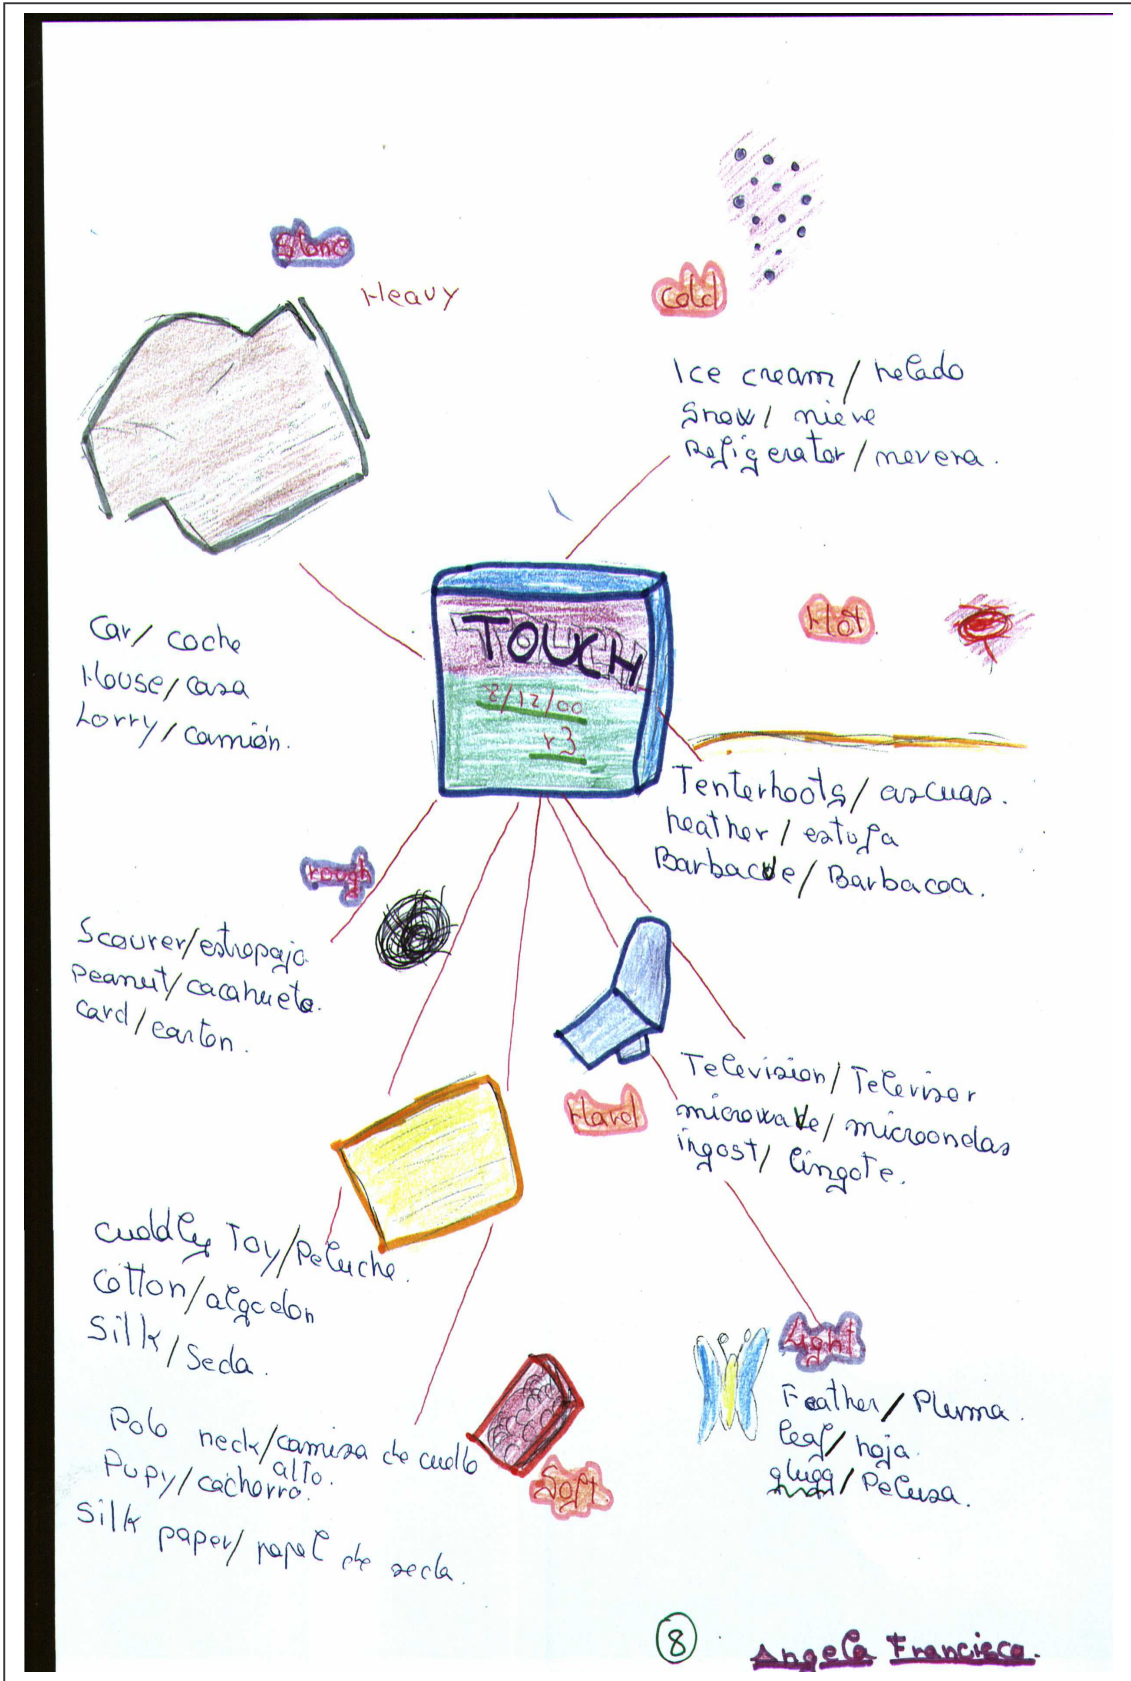 Stone
Heavy
Cold
Ice cream / helado
Snow / nieve
Refigerator / nevera.
Hot
TOUCH
8/12/00
r3
Car / coche
House / casa
Lorry / camión.
Tenterhoots / ascuas.
heather / estufa
Barbacue / Barbacoa.
rough
Scourer / estropajo
Peanut / cacahuete.
card / carton.
Television / Televisor
microwave / microondas
ingost / lingote.
Hard
Cuddly Toy / Peluche.
Cotton / algodon
Silk / Seda.
Light
Feather / Pluma.
leaf / hoja.
/ Pelusa.
Polo neck / camisa de cuello
alto.
Pupy / cachorro.
Silk paper / papel de seda.
Soft
8
Angela Francisca.